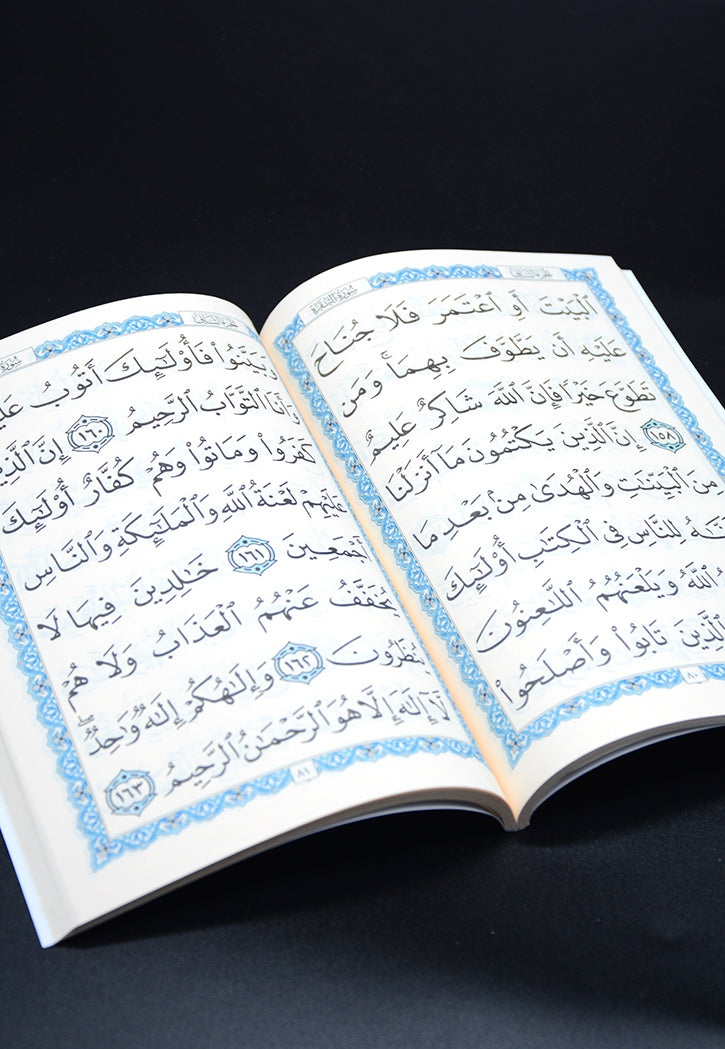 سُورَةُ البَقَرَةِ
ٱلْبَيْتَ أَوِ ٱعْتَمَرَ فَلَا جُنَاحَ
عَلَيْهِ أَن يَطَّوَّفَ بِهِمَا ۚ وَمَن
تَطَوَّعَ خَيْرًا فَإِنَّ ٱللَّهَ شَاكِرٌ عَلِيمٌ
١٥٨ إِنَّ ٱلَّذِينَ يَكْتُمُونَ مَآ أَنزَلْنَا
مِنَ ٱلْبَيِّنَٰتِ وَٱلْهُدَىٰ مِنۢ بَعْدِ مَا
لِلنَّاسِ فِى ٱلْكِتَٰبِ أُو۟لَٰٓئِكَ
ٱللَّهُ وَيَلْعَنُهُمُ ٱللَّٰعِنُونَ
ٱلَّذِينَ تَابُوا۟ وَأَصْلَحُوا۟
٨٠
وَبَيَّنُوا۟ فَأُو۟لَٰٓئِكَ أَتُوبُ
وَأَنَا ٱلتَّوَّابُ ٱلرَّحِيمُ ١٦٠ إِنَّ
كَفَرُوا۟ وَمَاتُوا۟ وَهُمْ كُفَّارٌ أُو۟لَٰٓئِكَ
عَلَيْهِمْ لَعْنَةُ ٱللَّهِ وَٱلْمَلَٰٓئِكَةِ وَٱلنَّاسِ
أَجْمَعِينَ ١٦١ خَٰلِدِينَ فِيهَا لَا
يُخَفَّفُ عَنْهُمُ ٱلْعَذَابُ وَلَا هُمْ
يُنظَرُونَ ١٦٢ وَإِلَٰهُكُمْ إِلَٰهٌ وَٰحِدٌ ۖ
لَّآ إِلَٰهَ إِلَّا هُوَ ٱلرَّحْمَٰنُ ٱلرَّحِيمُ ١٦٣
٨١